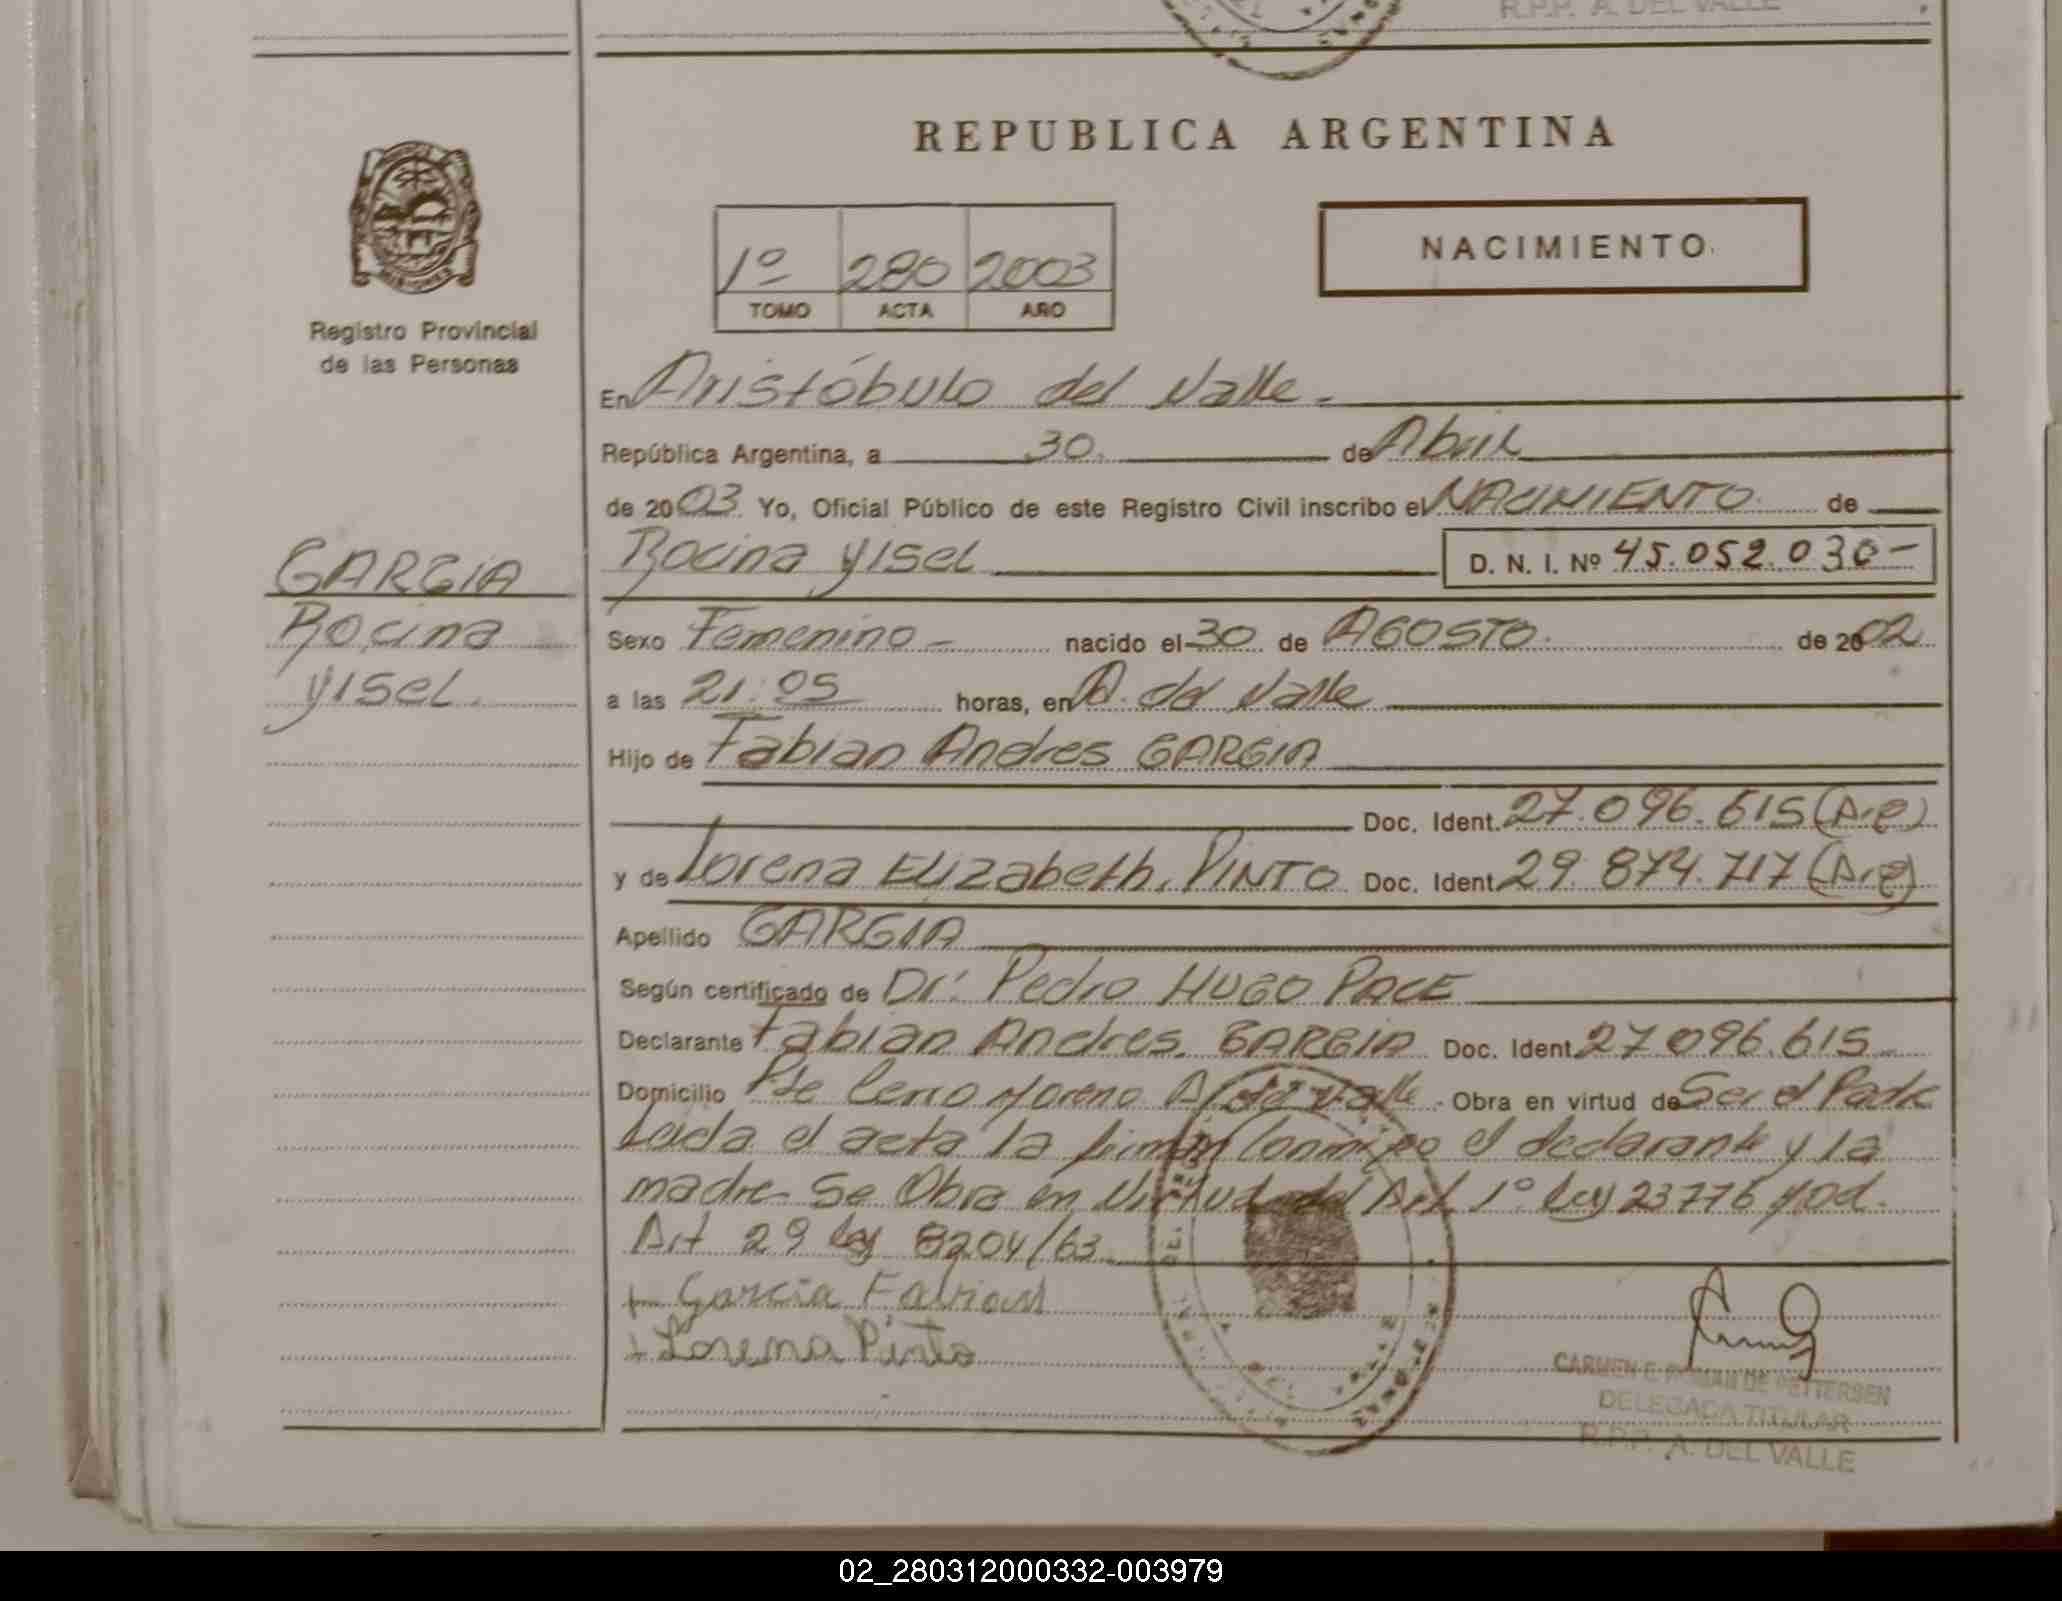 R.P.P. A. DEL VALLE
REPUBLICA ARGENTINA
1º 280 2003
TOMO ACTA AÑO
NACIMIENTO
Registro Provincial
de las Personas
En Aristóbulo del Valle.
República Argentina, a 30 de Abril
de 2003 Yo, Oficial Público de este Registro Civil inscribo el NACIMIENTO de
GARCIA
Rocina
yisel
Rocina yisel D. N. I. Nº 45.052.030-
Sexo Femenino - nacido el 30 de AGOSTO de 2002
a las 21:05 horas, en A. del Valle
Hijo de Fabian Andres GARCIA
Doc. Ident. 27.096.615 (Arg)
y de Lorena Elizabeth. PINTO Doc. Ident. 29.874.717 (Arg)
Apellido GARCIA
Según certificado de Dr. Pedro HUGO PACE
Declarante Fabian Andres. GARCIA Doc. Ident. 27.096.615
Domicilio Pje Cerro Moreno A. del Valle - Obra en virtud de Ser el Padre
Leida el acta la firman Conmigo el declarante y la
madre. Se Obra en Virtud del Art. 1º ley 23776 mod.
Art 29 ley 8204/63
+ Garcia Fabian
+ Lorena Pinto
CARMEN E. ROMAN DE PETTERSEN
DELEGADA TITULAR
R.P.P. A. DEL VALLE
02_280312000332-003979